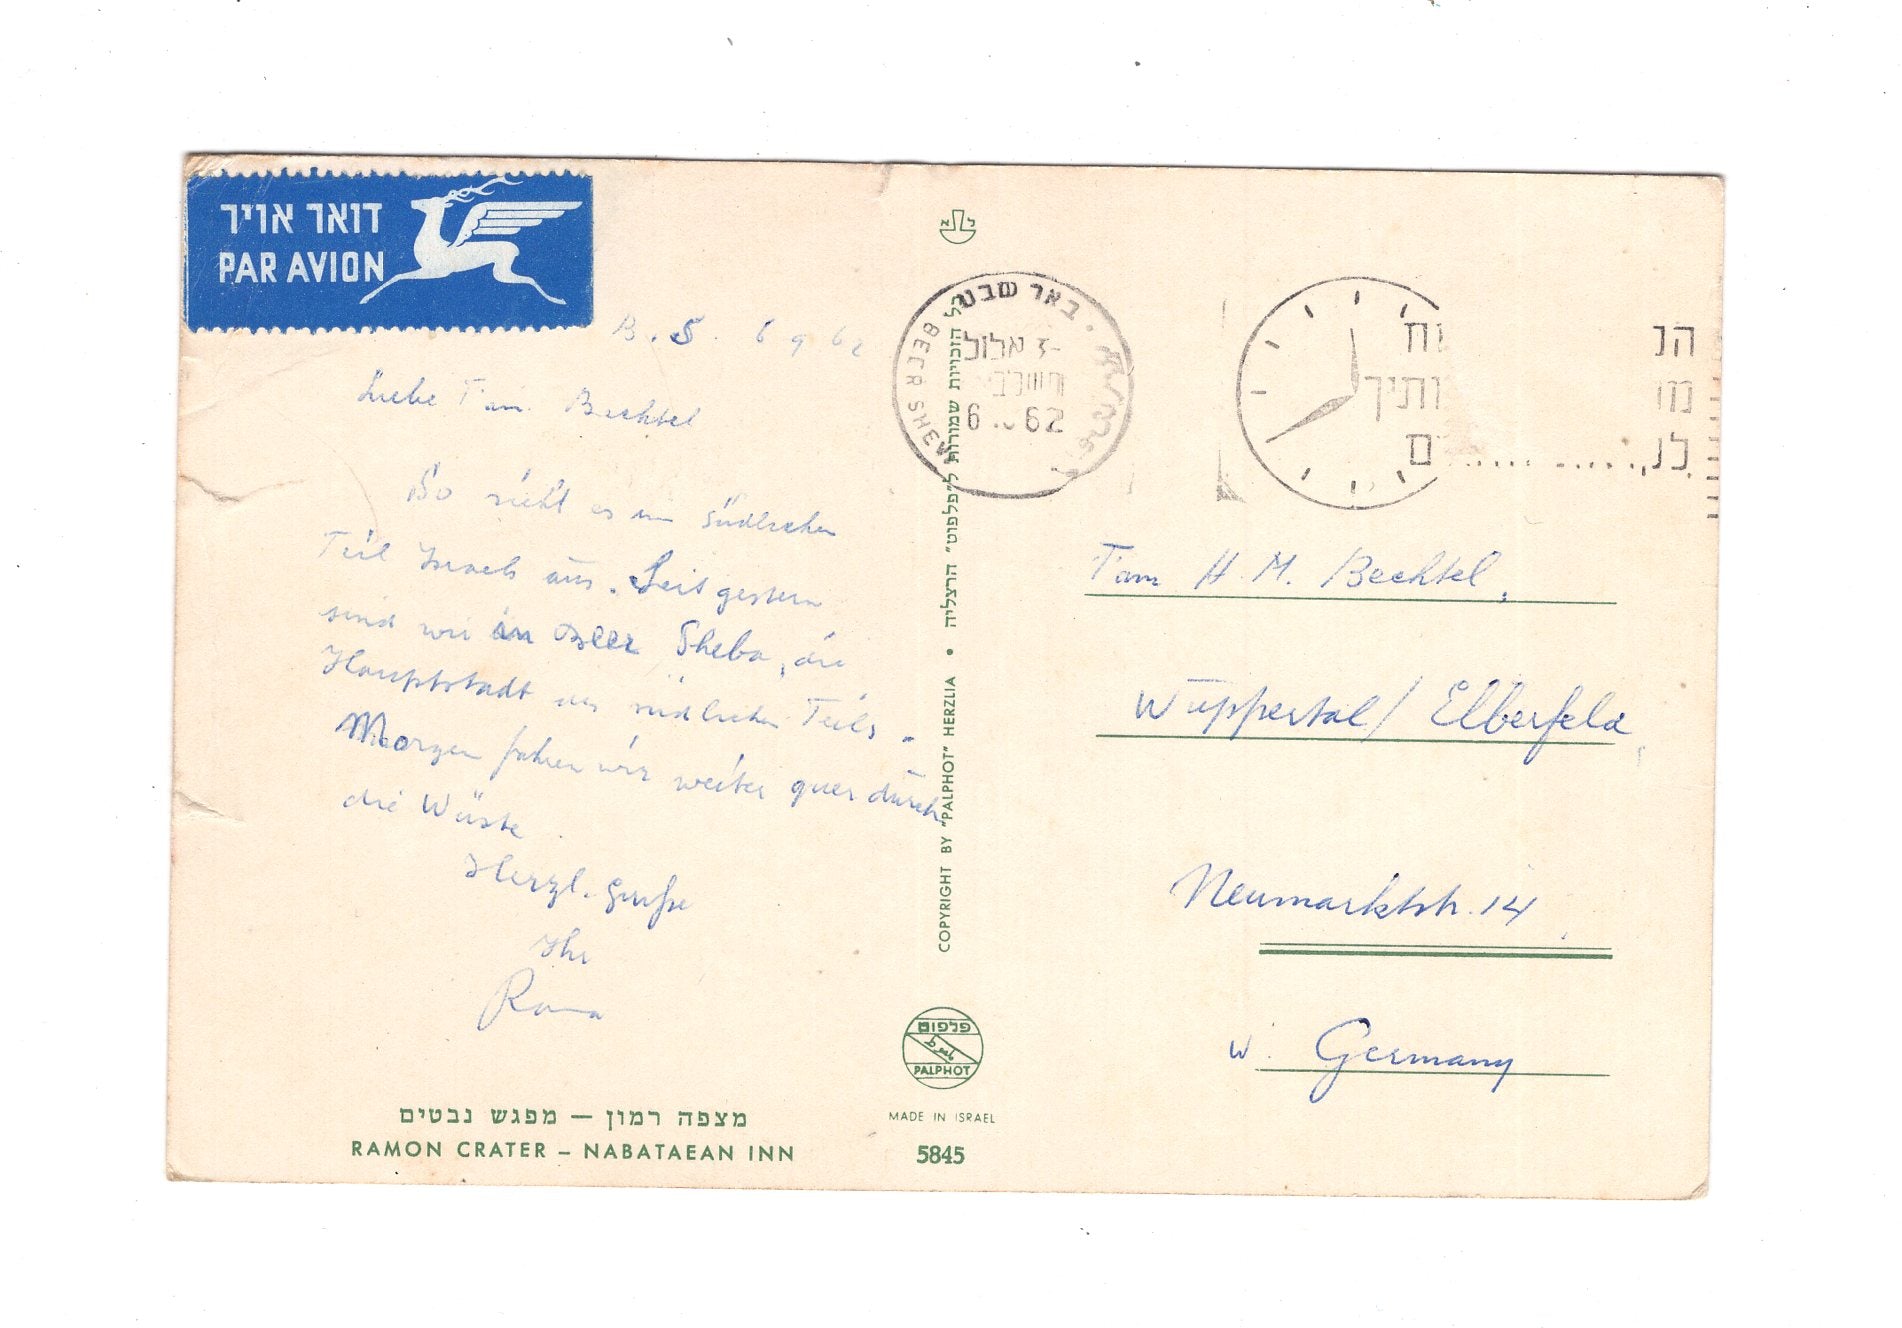 דואר אויר
PAR AVION
B.S. 6 9 62
Liebe Fam. Bechtel
So sieht es im südlichen
Teil Israels aus. Seit gestern
sind wir in Beer Sheba, die
Hauptstadt des südlichen Teils.
Morgen fahren wir weiter quer durch
die Wüste
Herzl. Grüße
Ihr
מצפה רמון – מפגש נבטים
RAMON CRATER – NABATAEAN INN
כל הזכויות שמורות ל"פלפוט" הרצליה • COPYRIGHT BY "PALPHOT" HERZLIA
פלפוט
PALPHOT
MADE IN ISRAEL
5845
באר שבע
BEER SHEVA
אלול
62
Fam H. M. Bechtel,
Wuppertal/Elberfeld
Neumarktstr. 14
W. Germany